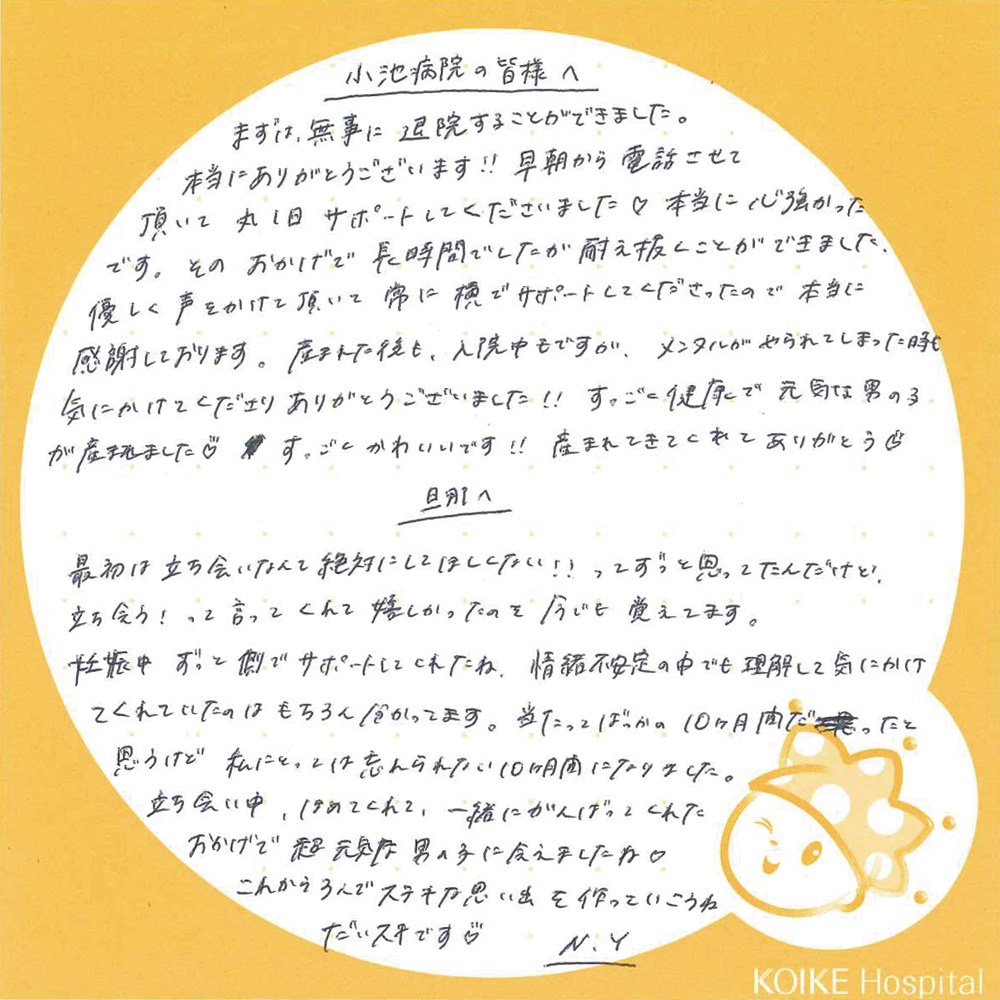 小池病院の皆様へ
まずは、無事に退院することができました。
本当にありがとうございます!! 早朝から電話させて
頂いて丸1日サポートしてくださいました♡ 本当に心強かった
です。そのおかげで長時間でしたが耐え抜くことができました。
優しく声をかけて頂いて常に横でサポートしてくださったので本当に
感謝しております。産まれた後も、入院中もですが、メンタルがやられてしまった時も
気にかけてくださりありがとうございました!! すっごく健康で元気な男の子
が産まれました♡ すっごくかわいいです!! 産まれてきてくれてありがとう♡
旦那へ
最初は立ち会いなんて絶対にしてほしくない!! ってずっと思ってたんだけど、
立ち会う!って言ってくれて嬉しかったのを今でも覚えてます。
妊娠中ずっと側でサポートしてくれたね。情緒不安定の中でも理解して気にかけ
てくれていたのはもちろん分かってます。当たってばっかの10ヶ月間だったと
思うけど私にとっては忘れられない10ヶ月間になりました。
立ち会い中、ほめてくれて、一緒にがんばってくれた
おかげで超元気な男の子に会えましたね♡
これから3人でステキな思い出を作っていこうね
だいスキです♡ N.Y
KOIKE Hospital